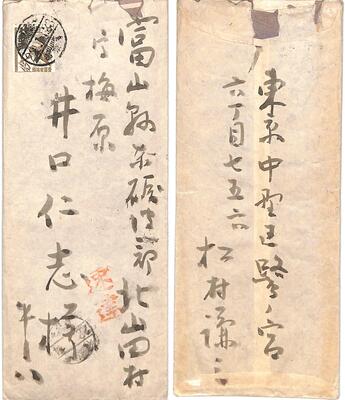 富山縣東礪波郡北山田村
字梅原
井口仁志様
速達
東京中野区鷺ノ宮
六丁目七五六
松村謙三